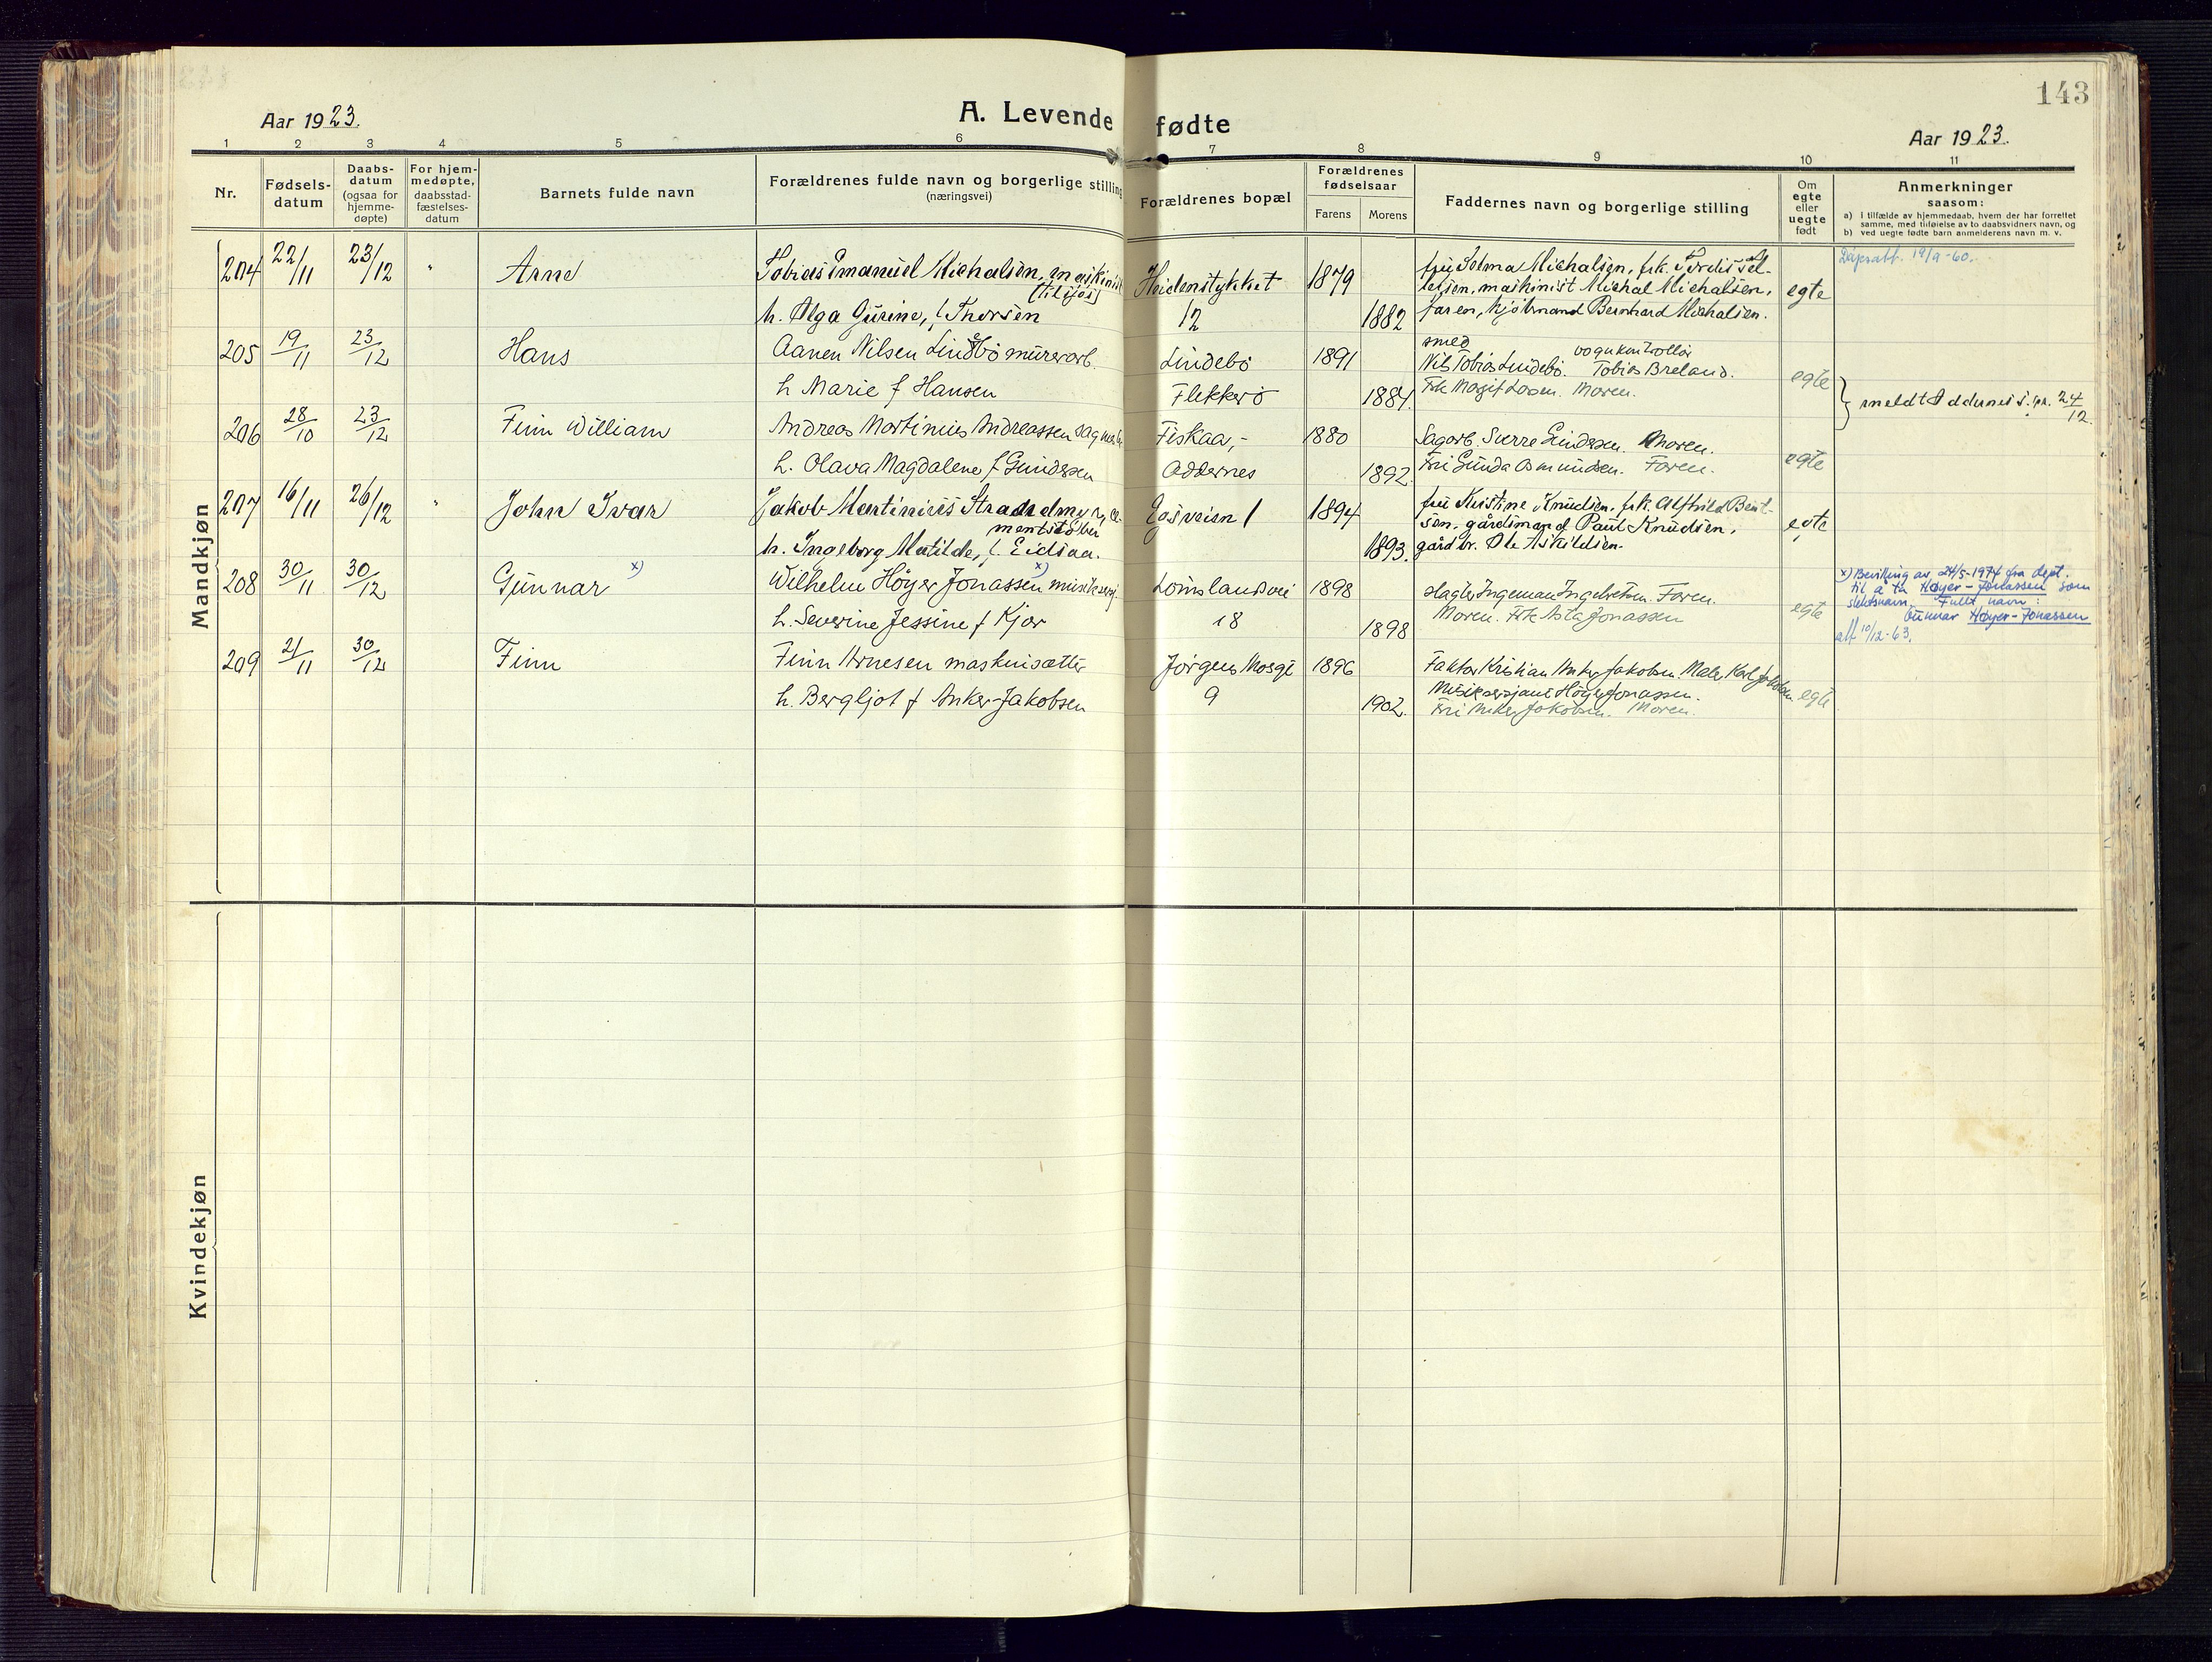 143
Aar 1923.
A. Levende fødte
Aar 1923.
1 2 3 4 5 6 7 8 9 10 11
Nr.
Fødsels-
datum
Daabs-
datum
(ogsaa for
hjemme-
døpte)
For hjem-
medøpte,
daabsstad-
fæstelses-
datum
Barnets fulde navn
Forældrenes fulde navn og borgerlige stilling
(næringsvei)
Forældrenes bopæl
Forældrenes
fødselsaar
Farens Morens
Faddernes navn og borgerlige stilling
Om
egte
eller
uegte
født
Anmerkninger
saasom:
a) I tilfælde av hjemmedaab, hvem der har forrettet
samme, med tilføielse av to daabsvidners navn, og
b) ved uegte fødte barn anmelderens navn m. v.
Mandkjøn
204 22/11 23/12 " Arne
Tobias Emanuel Michalsen, maskinist
h. Olga Gurine, f. Thorsen
Heidenstykket
12
1879
1882
fru Selma Michalsen, frk. Tordis Sel-
lesen, maskinist Michal Michalsen,
faren, kjøbmand Bernhard Michalsen.
egte
205 19/11 23/12 Hans
Aanen Nilsen Lindebö murerarb.
h Marie f Hansen
Lindebö
Flekkerö
1891
1884.
smed
vognkontrollör
Nils Tobias Lindebö. Tobias Breland.
Frk Margit Larsen. Moren.
egte
} meldt Oddernes s.pr. 24/12.
206 28/10 23/12 Finn William
Andreas Martinius Andreassen
h. Olava Magdalene f Gundersen
Fiskaa, -
Oddernes
1880
1892.
Sagarb. Sverre Gundersen. Moren.
Fru Gunda Osmundsen. Faren.
egte
207 16/11 26/12 " John Ivar
Jakob Martinius Strademyr, ce-
mentstöber
h. Ingeborg Matilde, f. Eidsaa.
Egsveien 1
1894
1893.
fru Kristine Knudsen, frk. Alfhild Bent-
sen, gårdsmand Paul Knudsen,
gårdbr. Ole Askildsen.
egte
208 30/11 30/12 Gunnar x)
Wilhelm Höyer Jonassen x) musikserj.
h. Severine Jessine f Kjær
Lömslandsvei
18
1898
1898
slagter Ingeman Ingebretsen. Faren.
Moren. Frk Asta Jonassen
egte
x) Bevilling av 24/5-1974 fra dept.
til å ta Høyer-Jonassen som
slektsnavn. Fullt navn:
Gunnar Høyer-Jonassen
att 10/12-63.
209 21/11 30/12 Finn
Finn Arnesen maskinsætter
h. Bergljot f Anker-Jakobsen
Jørgen Mosgt
9
1896
1902.
Faktor Kristian Anker Jakobsen. Maler Karl Jakobsen
Musiksersjant Höyer Jonassen.
Fru Anker Jakobsen. Moren.
egte
Kvindekjøn